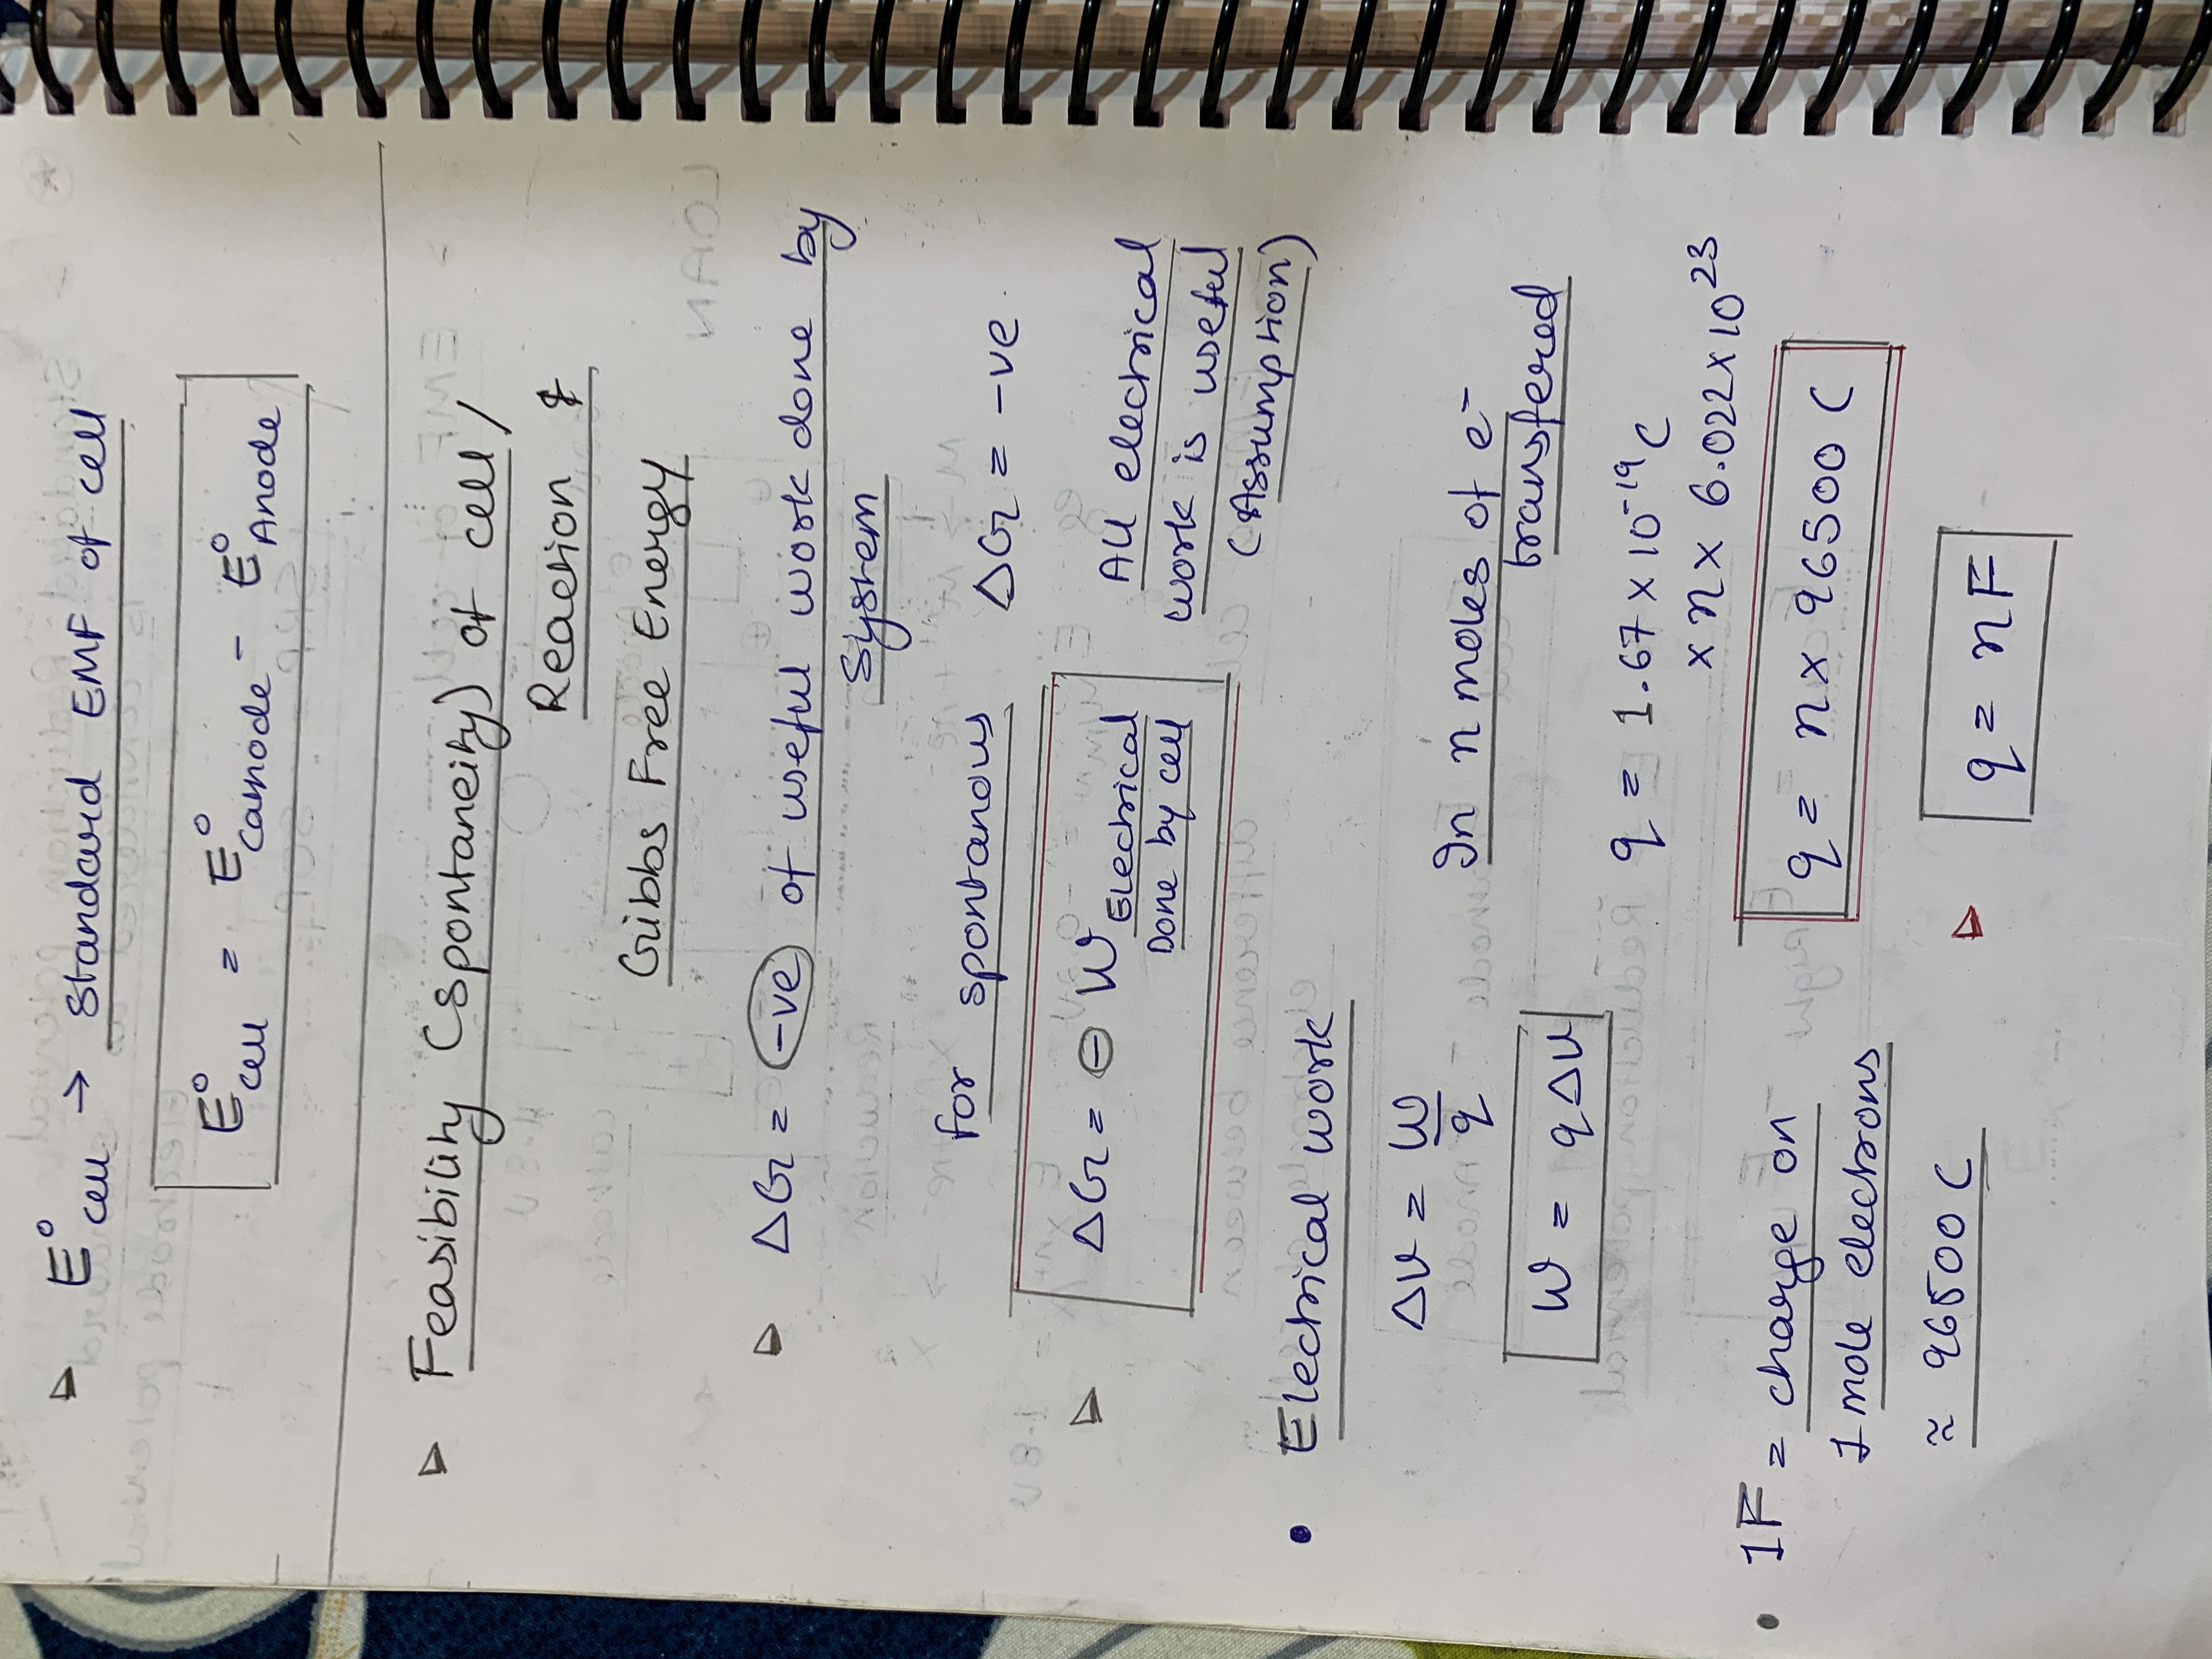 ▷ E°cell → Standard EMF of cell
E°cell = E°Cathode - E°Anode
▷ Feasibility (Spontaneity) of cell /
Reaction &
Gibbs Free Energy
▷ ΔG = -ve of useful work done by
System
for spontanous ΔG = -ve
▷ ΔG = ⊖ W Electrical
Done by cell
All electrical
work is useful
(Assumption)
• Electrical work
ΔV = W/q
W = qΔV
In n moles of e⁻
transfered
q = 1.67 × 10⁻¹⁹ C
× n × 6.022 × 10²³
q = n × 96500 C
• 1F = charge on
1 mole electrons
≈ 96500 C
▷ q = nF